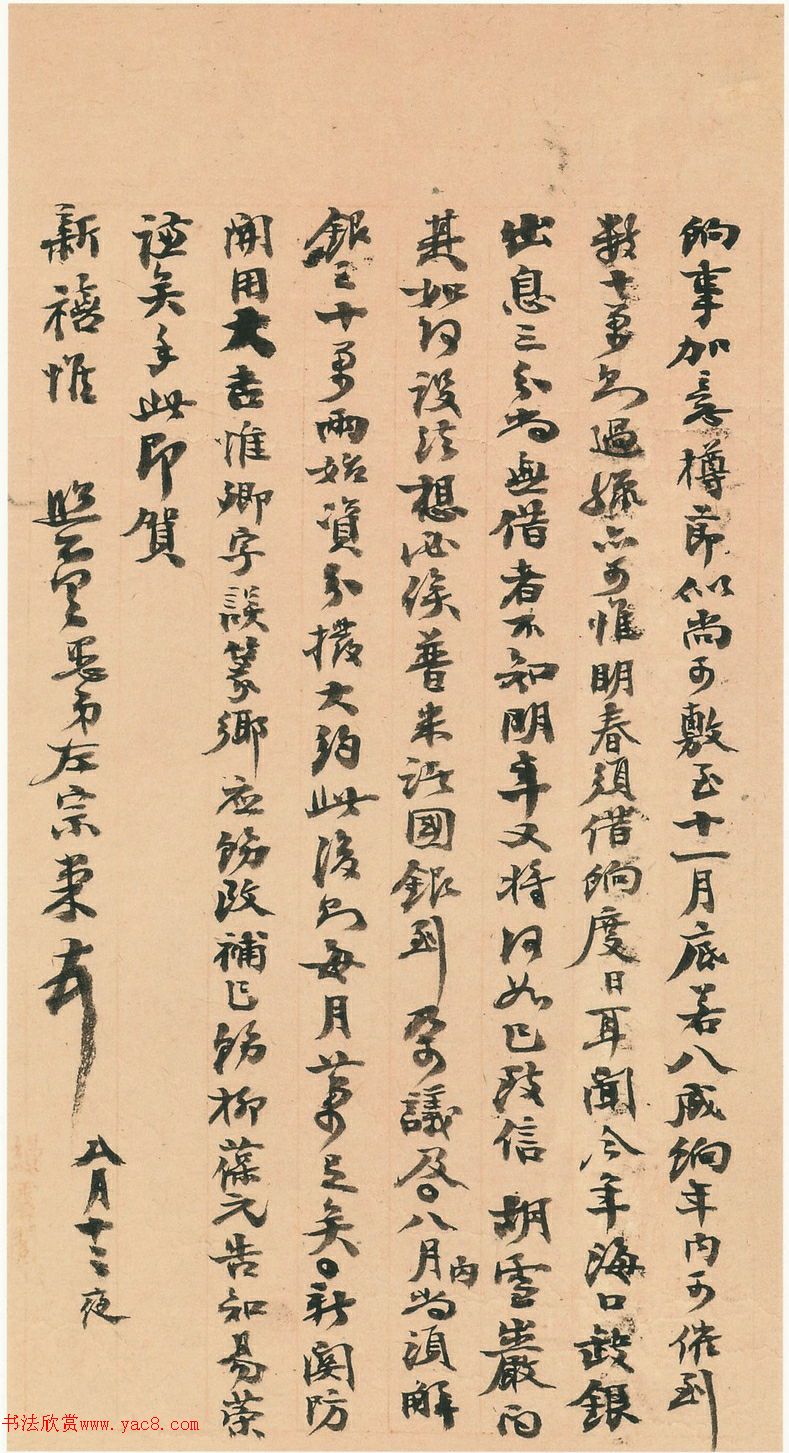 餉事加意樽節似尚可敷至十一月底若八成餉年內可催到
數十萬則過熱亦可惟明春須借餉度日耳聞今年海口錢銀
出息三分尚無借者不知明年又將何如已致信胡雪巖問
其如何設法想必俟普來語國銀到再可議及○八月內尚須解
銀三十萬兩始資分撥大約此後則每月萬足矣○新関防
開用大吉惟卿字誤篆鄉應飭改補已飭柳葆元告知易榮
誼矣手此即賀
新禧惟 照不具愚弟左宗棠頓
八月十二夜
书法欣赏www.yac8.com